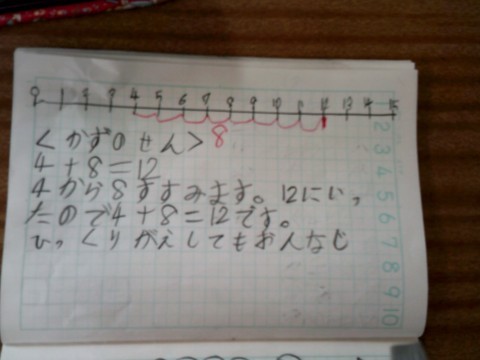 0 1 2 3 4 5 6 7 8 9 10 11 12 13 14 15
8
<かずのせん>
4+8=12
4から8すすみます。12にいっ
たので4+8=12です。
ひっくりがえしてもおんなじ
2 3 4 5 6 7 8 9 10